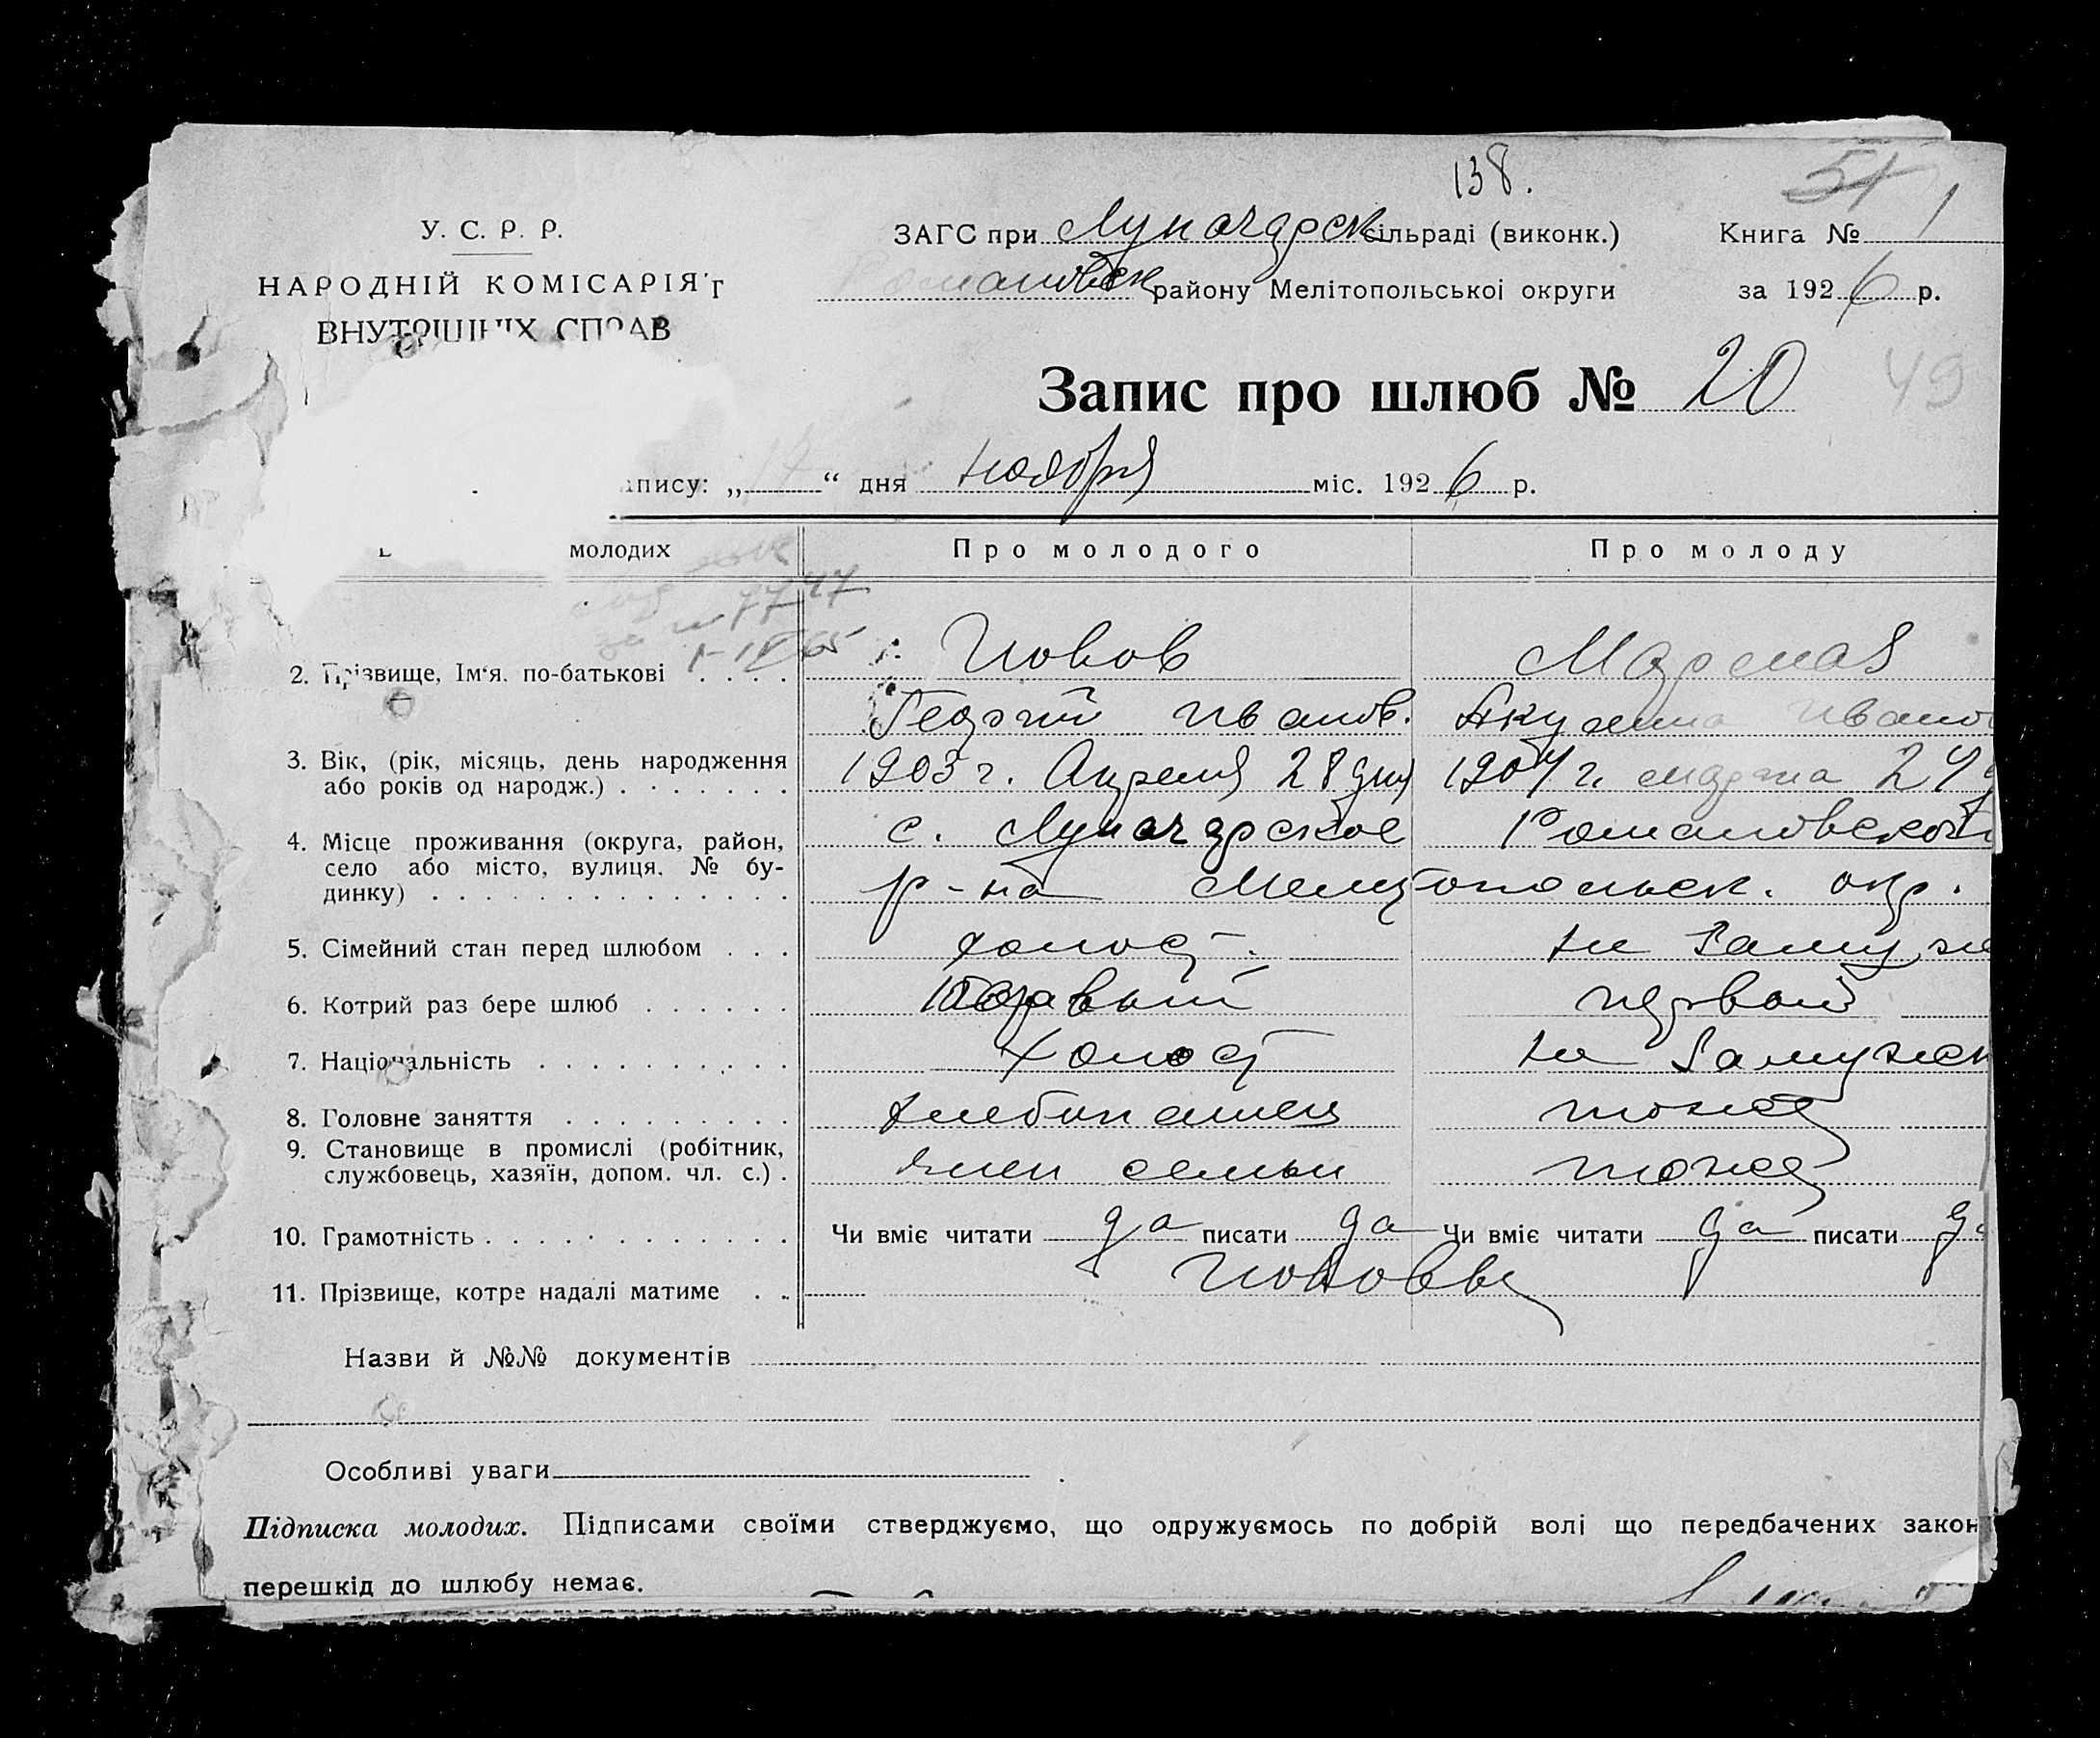 138.
51 1
У. С. Р. Р.
ЗАГС при Луначарск сільраді (виконк.)
Книга №
НАРОДНІЙ КОМІСАРІЯТ
Романовск району Мелітопольської округи
за 1926 р.
ВНУТРІШНІХ СПРАВ
Запис про шлюб № 20
49
апису: „17“ дня ноября міс. 1926 р.
молодих
Про молодого
Про молоду
за № 7747
2. Прізвище, Ім'я. по-батькові . . . .
Попов
Георгий Иванов.
Акулина Ивано
3. Вік, (рік, місяць, день народження
або років од народж.) . . . . . . .
1903 г. Апреля 28 дня
1904 г. марта 24
4. Місце проживання (округа, район,
село або місто, вулиця. № бу-
динку) . . . . . . . . . . . . . .
с. Луначарское
Романовског
р-на Мелитопольск. окр.
5. Сімейний стан перед шлюбом . . .
холост.
не замуж
6. Котрий раз бере шлюб . . . . . .
первый
первый
7. Національність . . . . . . . . . .
Холост
не замужем
8. Головне заняття . . . . . . . . .
хлебопашец
тоже
9. Становище в промислі (робітник,
службовець, хазяїн, допом. чл. с.) .
член семьи
тоже
10. Грамотність . . . . . . . . . . . .
Чи вміє читати да писати да
Чи вміє читати да писати да
11. Прізвище, котре надалі матиме . .
Поповы
Назви й №№ документів
Особливі уваги
Підписка молодих. Підписами своїми стверджуємо, що одружуємось по добрій волі що передбачених закон
перешкід до шлюбу немає.